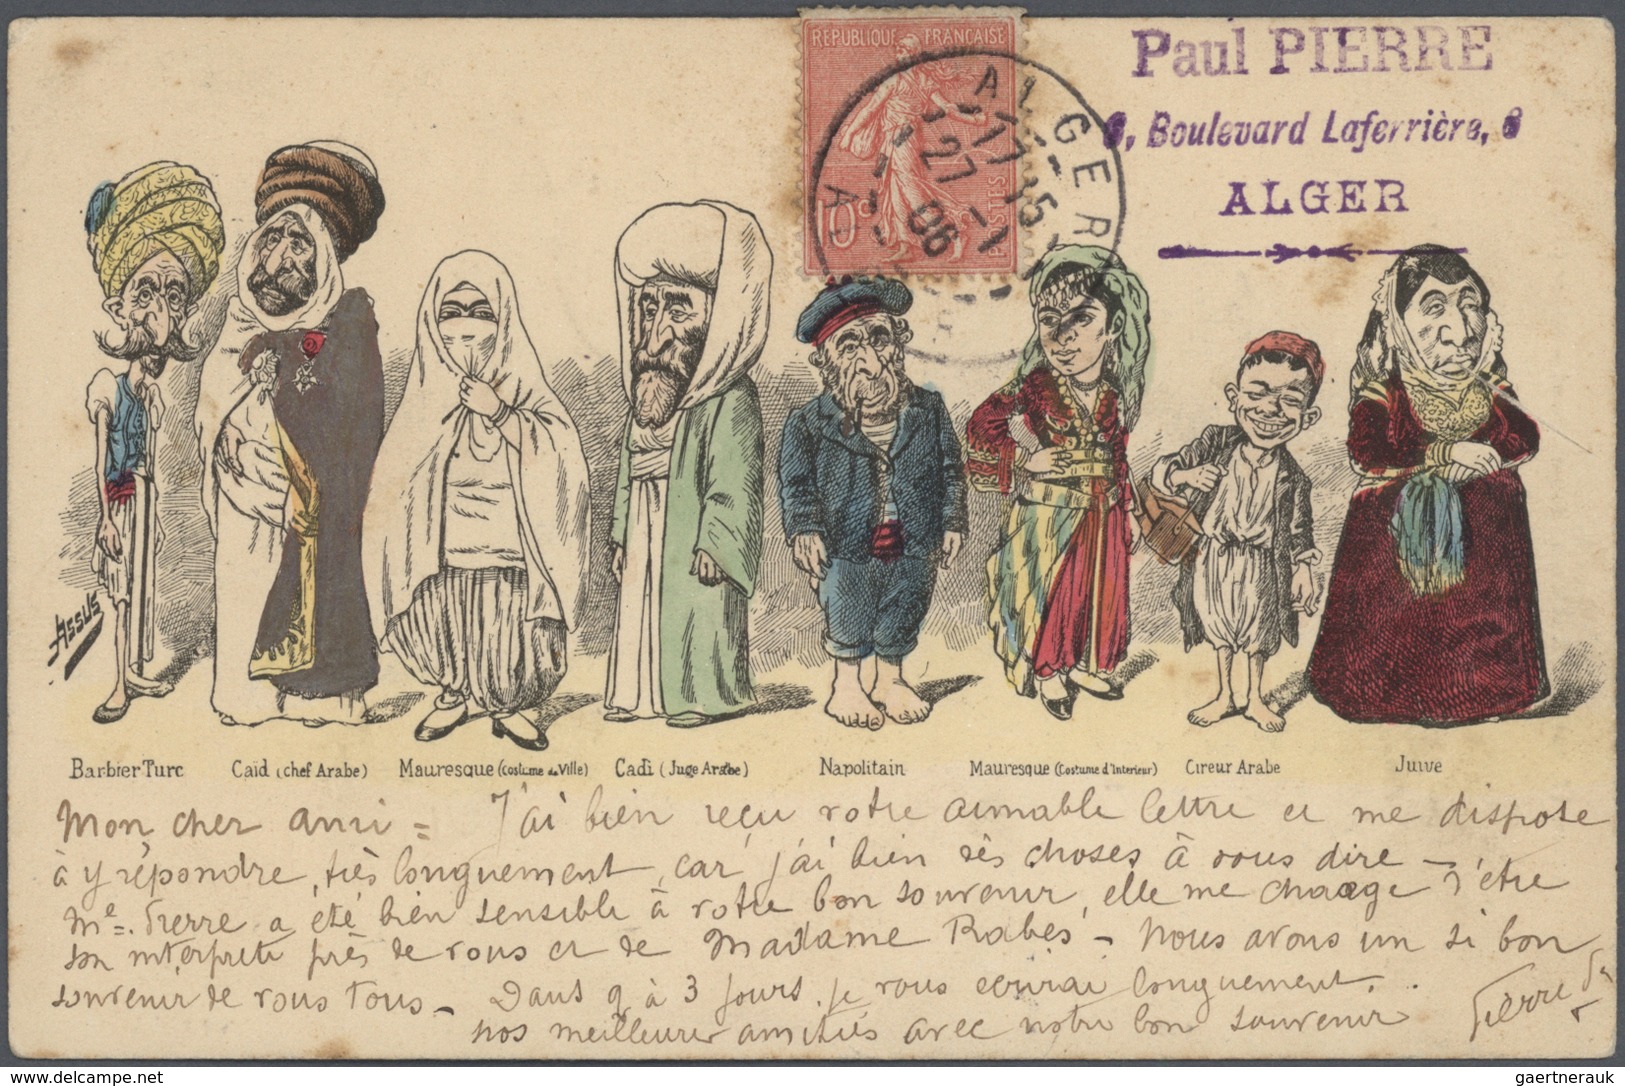 REPUBLIQUE FRANÇAISE
10c
POSTES
ALGER
17 15
27 -1
06
A
Paul PIERRE
6, Boulevard Laferrière, 6
ALGER
ASSUS
Barbier Turc Caïd (chef Arabe) Mauresque (Costume de Ville) Cadi (Juge Arabe) Napolitain Mauresque (Costume d'Interieur) Cireur Arabe Juive
Mon cher ami = J'ai bien reçu votre aimable lettre et me dispose
à y répondre, très longuement, car j'ai bien des choses à vous dire -
Me. Pierre a été bien sensible à votre bon souvenir, elle me charge d'être
son interprète près de vous et de Madame Rabès - Nous avons un si bon
souvenir de vous tous - Dans 2 à 3 jours je vous écrirai longuement.
nos meilleures amitiés avec notre bon souvenir Pierre
www.delcampe.net
gaertnerauk